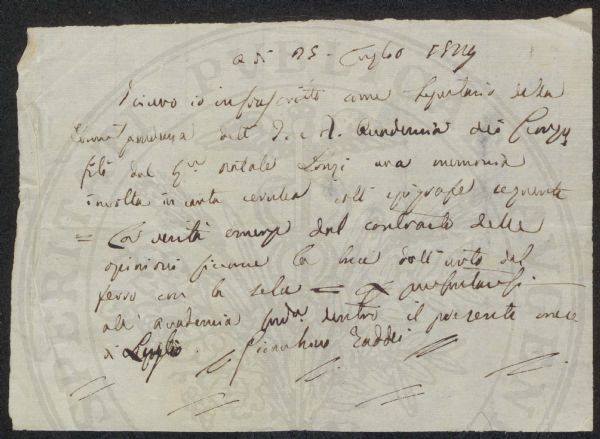 a dì 25 - Luglio 1824
Ricevo io infrascritto come Segretario della
Corrispondenza dell' I. e R. Accademia dei Georgo
fili dal Sig.re Natale una memoria
involta in carta cerulea coll' epigrafe seguente
= La verità emerge dal contrasto delle
opinioni siccome la luce dall' urto del
ferro con la selce = da presentarsi
all' Accademia sud.a dentro il presente mese
di Luglio. Gioacchino Taddei